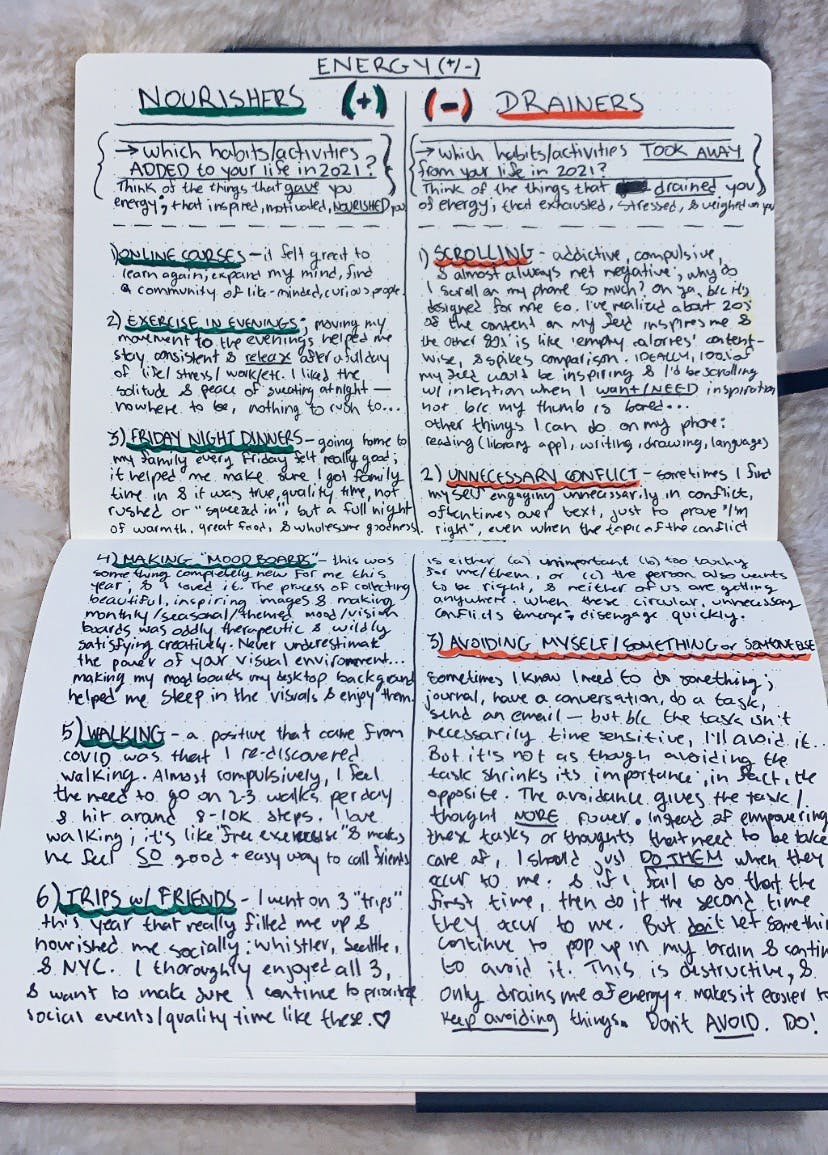 ENERGY (+/-)
NOURISHERS (+)
→ which habits/activities
ADDED to your life in 2021?
Think of the things that gave you
energy; that inspired, motivated, NOURISHED you
1) ONLINE COURSES - it felt great to
learn again, expand my mind, find
a community of like-minded, curious people.
2) EXERCISE IN EVENINGS; moving my
movement to the evenings helped me
stay consistent & release after a full day
of life/stress/work/etc. I liked the
solitude & peace of sweating at night —
nowhere to be, nothing to rush to...
3) FRIDAY NIGHT DINNERS - going home to
my family every Friday felt really good;
it helped me make sure I got family
time in & it was true, quality time, not
rushed or "squeezed in", but a full night
of warmth, great food, & wholesome goodness.
4) MAKING "MOOD BOARDS" - this was
something completely new for me this
year, & I loved it. The process of collecting
beautiful, inspiring images & making
monthly/seasonal/themed mood/vision
boards was oddly therapeutic & wildly
satisfying creatively. Never underestimate
the power of your visual environment...
making my mood boards my desktop background
helped me steep in the visuals & enjoy them.
5) WALKING - a positive that came from
covid was that I re-discovered
walking. Almost compulsively, I feel
the need to go on 2-3 walks per day
& hit around 8-10K steps. I love
walking; it's like "free exercise" & makes
me feel SO good + easy way to call friends
6) TRIPS w/ FRIENDS - I went on 3 "trips"
this year that really filled me up &
nourished me socially: whistler, Seattle,
& NYC. I thoroughly enjoyed all 3,
& want to make sure I continue to prioritize
social events/quality time like these. ♡
(-) DRAINERS
→ which habits/activities TOOK AWAY
from your life in 2021?
Think of the things that drained you
of energy; that exhausted, stressed, & weighed on you
1) SCROLLING - addictive, compulsive,
& almost always net negative; why do
I scroll on my phone so much? oh ya, b/c it's
designed for me to. I've realized about 20%
of the content on my feed inspires me &
the other 80% is like 'empty calories' content-
wise, & spikes comparison. IDEALLY, 100% of
my feed would be inspiring & I'd be scrolling
w/ intention when I WANT/NEED inspiration
not b/c my thumb is bored...
other things I can do on my phone:
reading (library app), writing, drawing, languages)
2) UNNECESSARY CONFLICT - sometimes I find
myself engaging unnecessarily in conflict,
oftentimes over text, just to prove "I'm
right", even when the topic of the conflict
is either (a) unimportant (b) too touchy
for me/them, or (c) the person also wants
to be right, & neither of us are getting
anywhere. When these circular, unnecessary
conflicts emerge; disengage quickly.
3) AVOIDING MYSELF/SOMETHING or SOMEONE ELSE
Sometimes I know I need to do something;
journal, have a conversation, do a task,
send an email — but b/c the task isn't
necessarily time sensitive, I'll avoid it...
But it's not as though avoiding the
task shrinks its importance; in fact, the
opposite. The avoidance gives the task/
thought MORE power. Instead of empowering
these tasks or thoughts that need to be taken
care of, I should just DO THEM when they
occur to me. & if I fail to do that the
first time, then do it the second time
they occur to me. But don't let something
continue to pop up in my brain & contin
to avoid it. This is destructive, &
only drains me of energy + makes it easier to
keep avoiding things. Don't AVOID. DO!